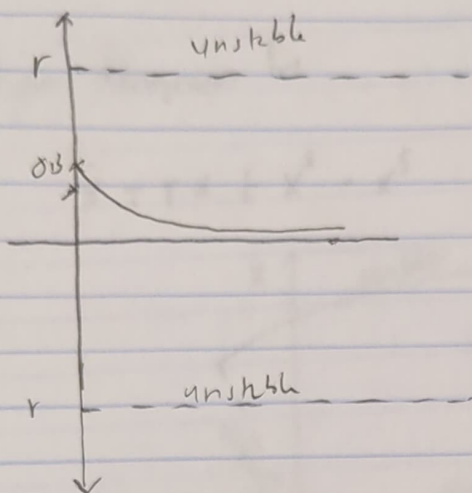 unstable
r
0.5
unstable
r